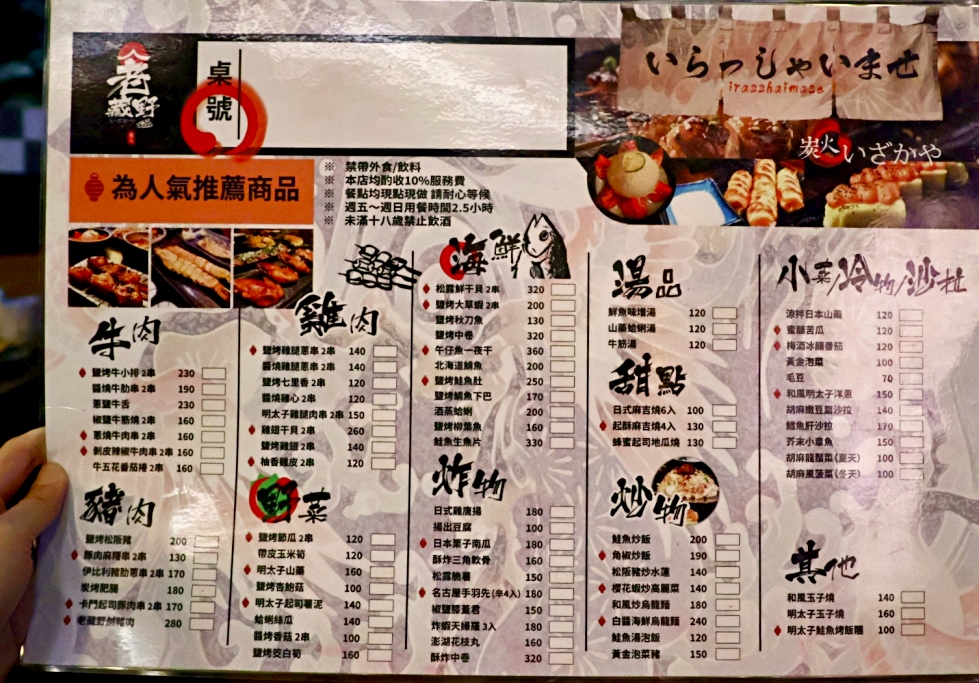 老藏野
桌號
いらっしゃいませ
irasshaimase
炭火いざかや
為人氣推薦商品
※ 禁帶外食/飲料
※ 本店均酌收10%服務費
※ 餐點均現點現做 請耐心等候
※ 週五～週日用餐時間2.5小時
※ 未滿十八歲禁止飲酒
牛肉
鹽烤牛小排 2串 230
醬燒牛肋串 2串 190
蔥鹽牛舌 230
椒鹽牛筋燒 2串 160
蔥燒牛肉串 2串 160
剝皮辣椒牛肉串 2串 160
牛五花番茄捲 2串 160
豬肉
鹽烤松阪豬 200
豚肉麻糬串 2串 130
伊比利豬肋蔥串 2串 170
炭烤肥腸 180
卡門起司豚肉串 2串 170
老藏野燃豬肉 280
雞肉
鹽烤雞腿蔥串 2串 140
醬燒雞腿蔥串 2串 140
鹽烤七里香 2串 120
醬燒雞心 2串 120
明太子雞腿肉串 2串 150
雞翅干貝 2串 260
鹽烤雞翅 2串 140
柚香雞皮 2串 120
野菜
鹽烤節瓜 2串 120
帶皮玉米筍 120
明太子山藥 160
鹽烤杏鮑菇 100
明太子起司薯泥 140
蛤蜊絲瓜 140
醬烤香菇 2串 100
鹽烤筊白筍 160
海鮮
松露鮮干貝 2串 320
鹽烤大草蝦 2串 200
鹽烤秋刀魚 130
鹽烤中卷 320
午仔魚一夜干 360
北海道鯖魚 200
鹽烤鮭魚肚 250
鹽烤鯛魚下巴 170
酒蒸蛤蜊 200
鹽烤柳葉魚 160
鮭魚生魚片 330
炸物
日式雞唐揚 180
揚出豆腐 100
日本栗子南瓜 180
酥炸三角軟骨 160
松露脆薯 150
名古屋手羽先(辛4入) 180
椒鹽膝蓋君 150
炸蝦天婦羅 3入 180
澎湖花枝丸 160
酥炸中卷 320
湯品
鮮魚味增湯 120
山藥蛤蜊湯 120
牛筋湯 120
甜點
日式麻吉燒6入 100
起酥麻吉燒4入 130
蜂蜜起司地瓜燒 130
炒物
鮭魚炒飯 200
角椒炒飯 190
松阪豬炒水蓮 140
櫻花蝦炒高麗菜 140
和風炒烏龍麵 180
白醬海鮮烏龍麵 240
鮭魚湯泡飯 120
黃金泡菜豬 150
小菜/冷物/沙拉
涼拌日本山藥 120
蜜釀苦瓜 120
梅酒冰釀番茄 120
黃金泡菜 100
毛豆 70
和風明太子洋蔥 150
胡麻嫩豆腐沙拉 140
鱈魚肝沙拉 170
芥末小章魚 150
胡麻龍鬚菜(夏天) 100
胡麻風菠菜(冬天) 100
其他
和風玉子燒 140
明太子玉子燒 160
明太子鮭魚烤飯糰 100